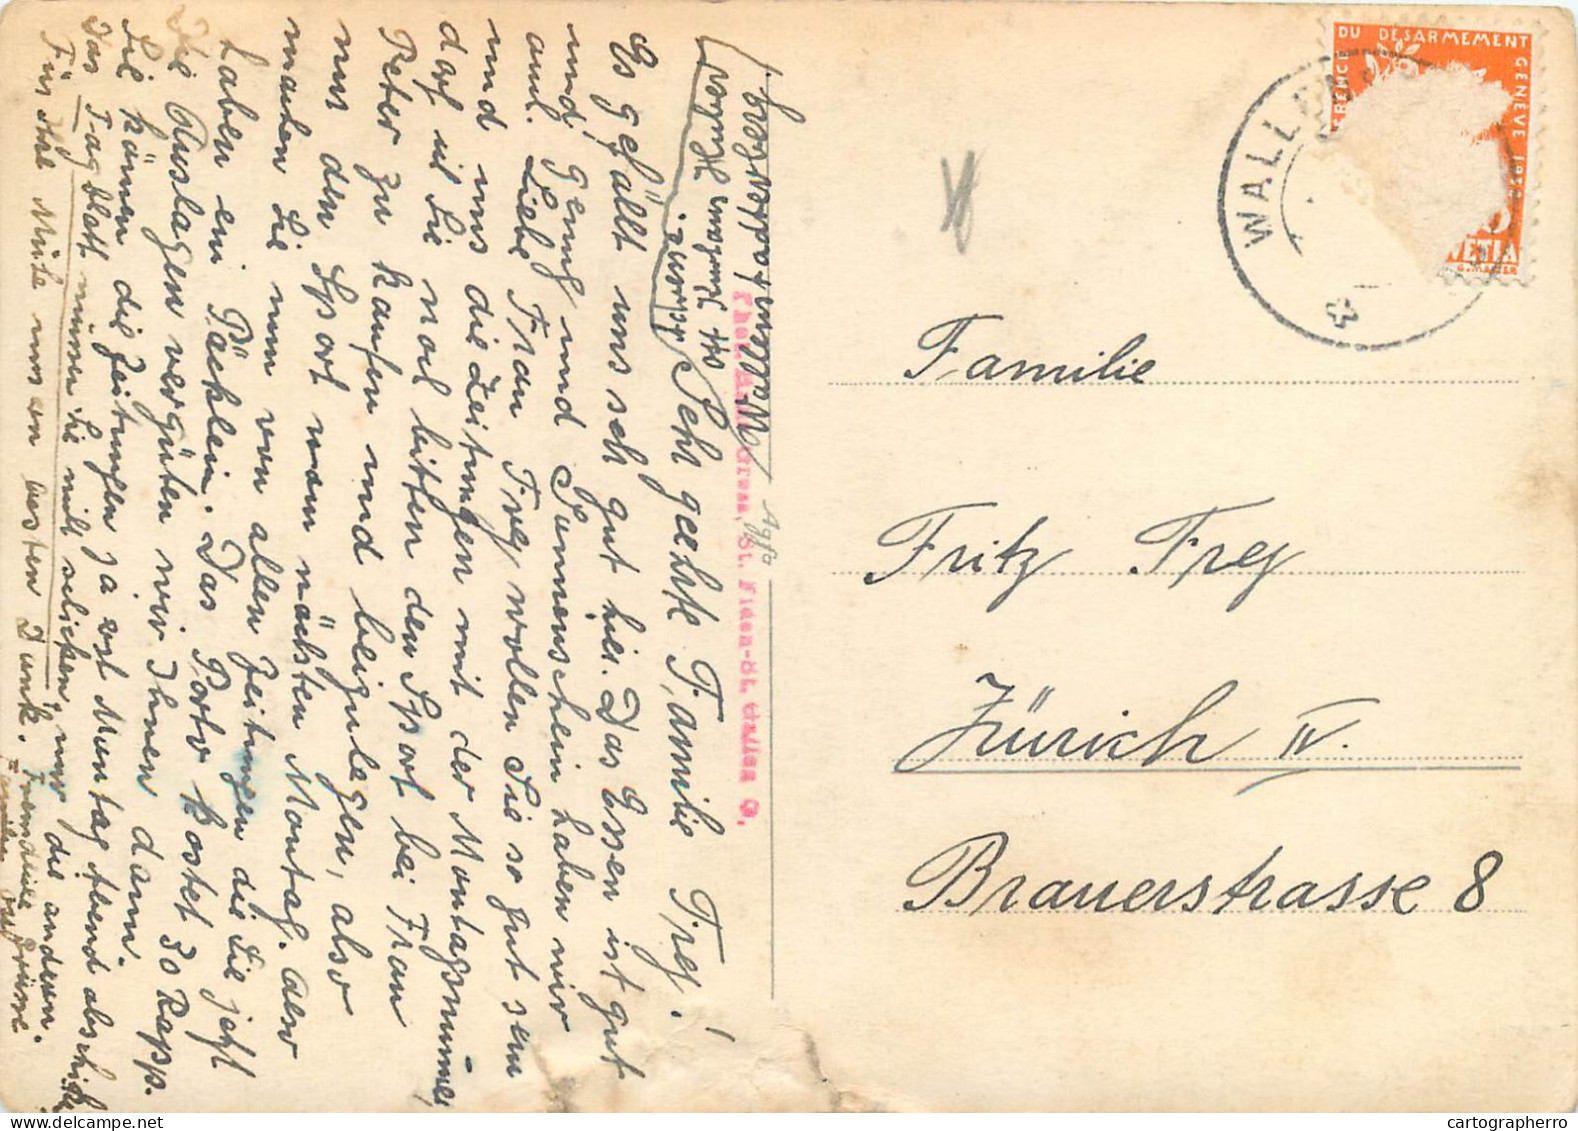 Wallenstadterberg
Sehr geehrte Familie Frey!
Es gefällt uns seh gut hier. Das Essen ist gut
und genug und Sonnenschein haben wir
auch. Liebe Frau Frey wollen Sie so gut sein
und uns die Zeitungen mit der Montagsnummer,
darf ich Sie noch bitten den Sport bei Frau
Peter zu kaufen und beizulegen, also
nur den Sport vom nächsten Montag. also
machen Sie nun von allen Zeitungen die Sie jetzt
haben ein Päcklein. Das Porto kostet 30 Rapp.
Die Auslagen vergüten wir Ihnen dann.
Sie können die Zeitungen ja erst Montag Abend abschicken
das Tagblatt müssen Sie nicht schicken, nur die andern.
Für Ihre Mühe uns am besten Dank. Freundliche
Grüsse
Phot. Anst. Gross, St. Fiden-St. Gallen O.
Agfa
DU DESARMEMENT
GENÈVE 1932
WALLEN
Familie
Fritz Frey
Zürich IV.
Brauerstrasse 8
cartographerro